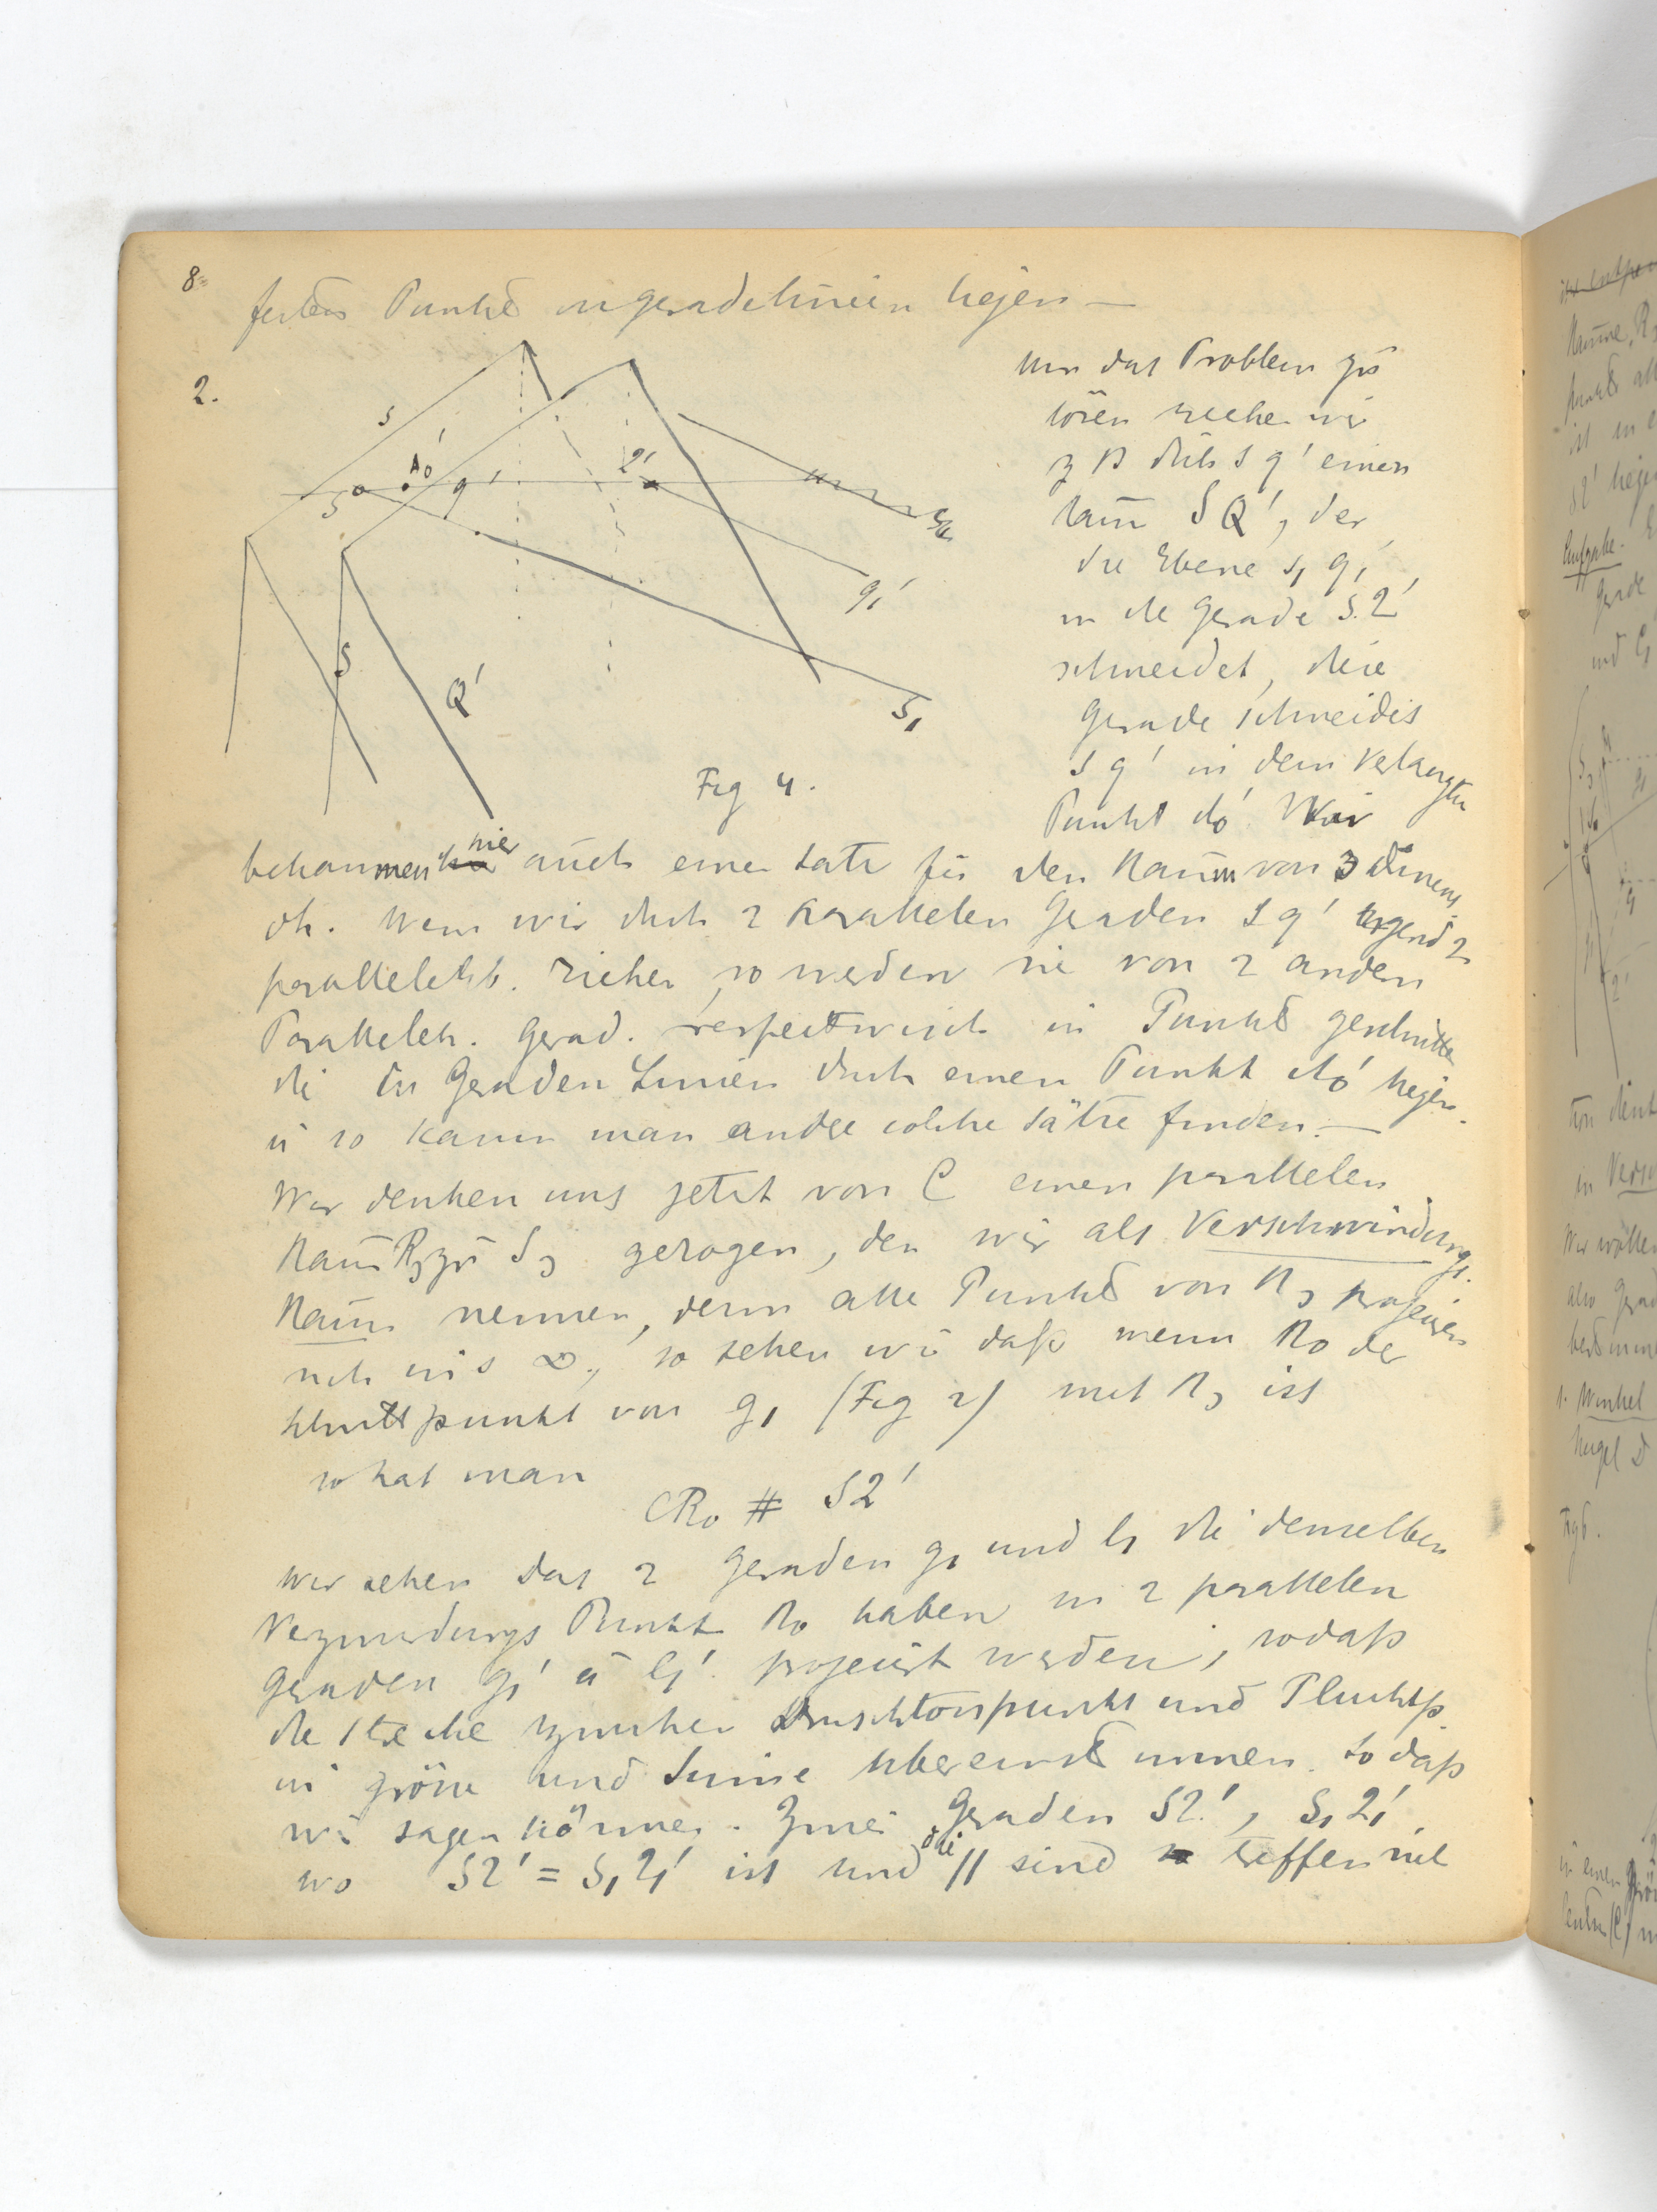 8.
festen Punkte in geradelinien liegen —
2.
Um das Problem zu
lösen ziehe wir
z B durch s q' einen
Raum S Q', der
die Ebene s₁ q₁'
in die Gerade S.Q'
schneidet, diese
Gerade schneidet
s q' in dem verlangten
Punkt A₀'. Wir
s
A₀'
q'
Q'
S
s₁
q₁'
S
Q'
S₁
Fig 4.
bekommen hier auch einen Satz für den Raum von 3 Dimens
oh. Wenn wir durch 2 Parallelen Geraden s q' irgend 2
parallele Eb. ziehen, so werden sie von 2 andern
Parallelen. Gerad. respektivisch in Punkte geschnitten
die in Geraden Linien durch einen Punkt A₀' liegen.
u so kann man andre solche Sätze finden. —
Wir denken uns jetzt von C einen parallelen
Raum R₃ zu S₃ gezogen, den wir als Verschwindungs.
Raum nennen, denn alle Punkte von R₃ projeciren
sich ins ∞., so sehen wir daß wenn R₀ der
Schnittpunkt von g₁ (Fig 2) mit R₃ ist
so hat man
CR₀ # SQ'
Wir sehen das 2 Geraden g₁ und l₁ die denselben
Verzwindungs Punkt R₀ haben in 2 parallelen
Geraden g₁' u l₁' projeciert werden, sodaß
die Strecke zwischen und Fluchtp.
in grösse und Sinne übereinstimmen. Sodaß
wir sagen können. Zwei Geraden SQ', S₁Q₁'
wo SQ' = S₁Q₁' ist und die // sind treffen sich